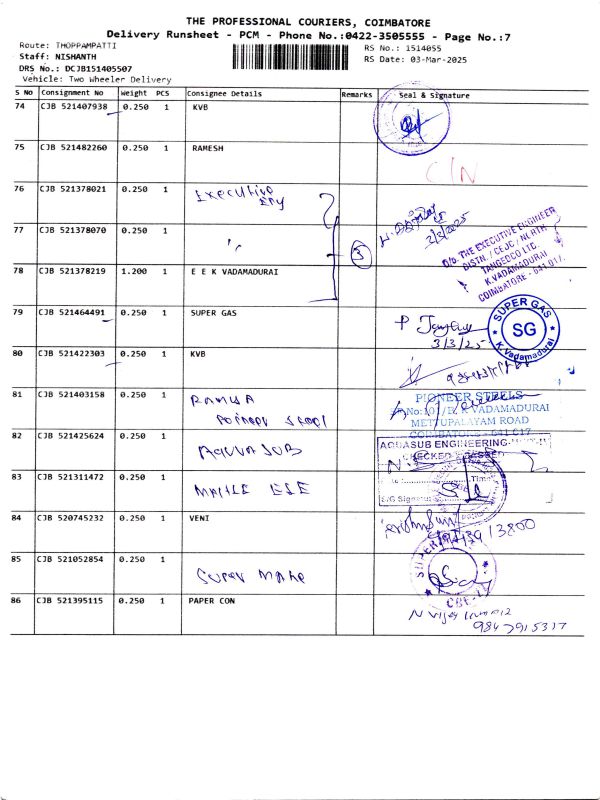 THE PROFESSIONAL COURIERS, COIMBATORE
Delivery Runsheet - PCM - Phone No.:0422-3505555 - Page No.:7
Route: THOPPAMPATTI
RS No.: 1514055
Staff: NISHANTH
RS Date: 03-Mar-2025
DRS No.: DCJB151405507
Vehicle: Two Wheeler Delivery
S NO Consignment No Weight PCS Consignee Details Remarks Seal & Signature
74 CJB 521407938 0.250 1 KVB
75 CJB 521482260 0.250 1 RAMESH
C/N
76 CJB 521378021 0.250 1 Executive
Eng
77 CJB 521378070 0.250 1 "
3
2/3/2025
O/o. THE EXECUTIVE ENGINEER
DISTN./ CEJC / NORTH
TANGEDCO LTD.
K.VADAMADURAI
COIMBATORE - 641 017.
78 CJB 521378219 1.200 1 E E K VADAMADURAI
79 CJB 521464491 0.250 1 SUPER GAS
SUPER GAS
SG
K.Vadamadurai
3/3/25
80 CJB 522422303 0.250 1 KVB
81 CJB 521403158 0.250 1
PIONEER STEELS
K VADAMADURAI
METTUPALAYAM ROAD
COIMBATORE - 641 017
82 CJB 521425624 0.250 1 Aquva SUB
AQUASUB ENGINEERING
CHECKED & PASSED
Time
S/G Signature
83 CJB 521311472 0.250 1
84 CJB 520745232 0.250 1 VENI
85 CJB 521052854 0.250 1 Super Make
SUPER
CBE
86 CJB 521395115 0.250 1 PAPER CON
9847915317